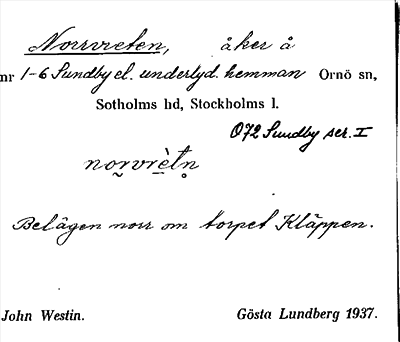 Norrvreten, åker å
nr 1-6 Sundby el. underlyd. hemman Ornö sn,
Sotholms hd, Stockholms l.
072 Sundby ser. I
norvrètn
Belägen norr om torpet Kläppen.
John Westin. Gösta Lundberg 1937.